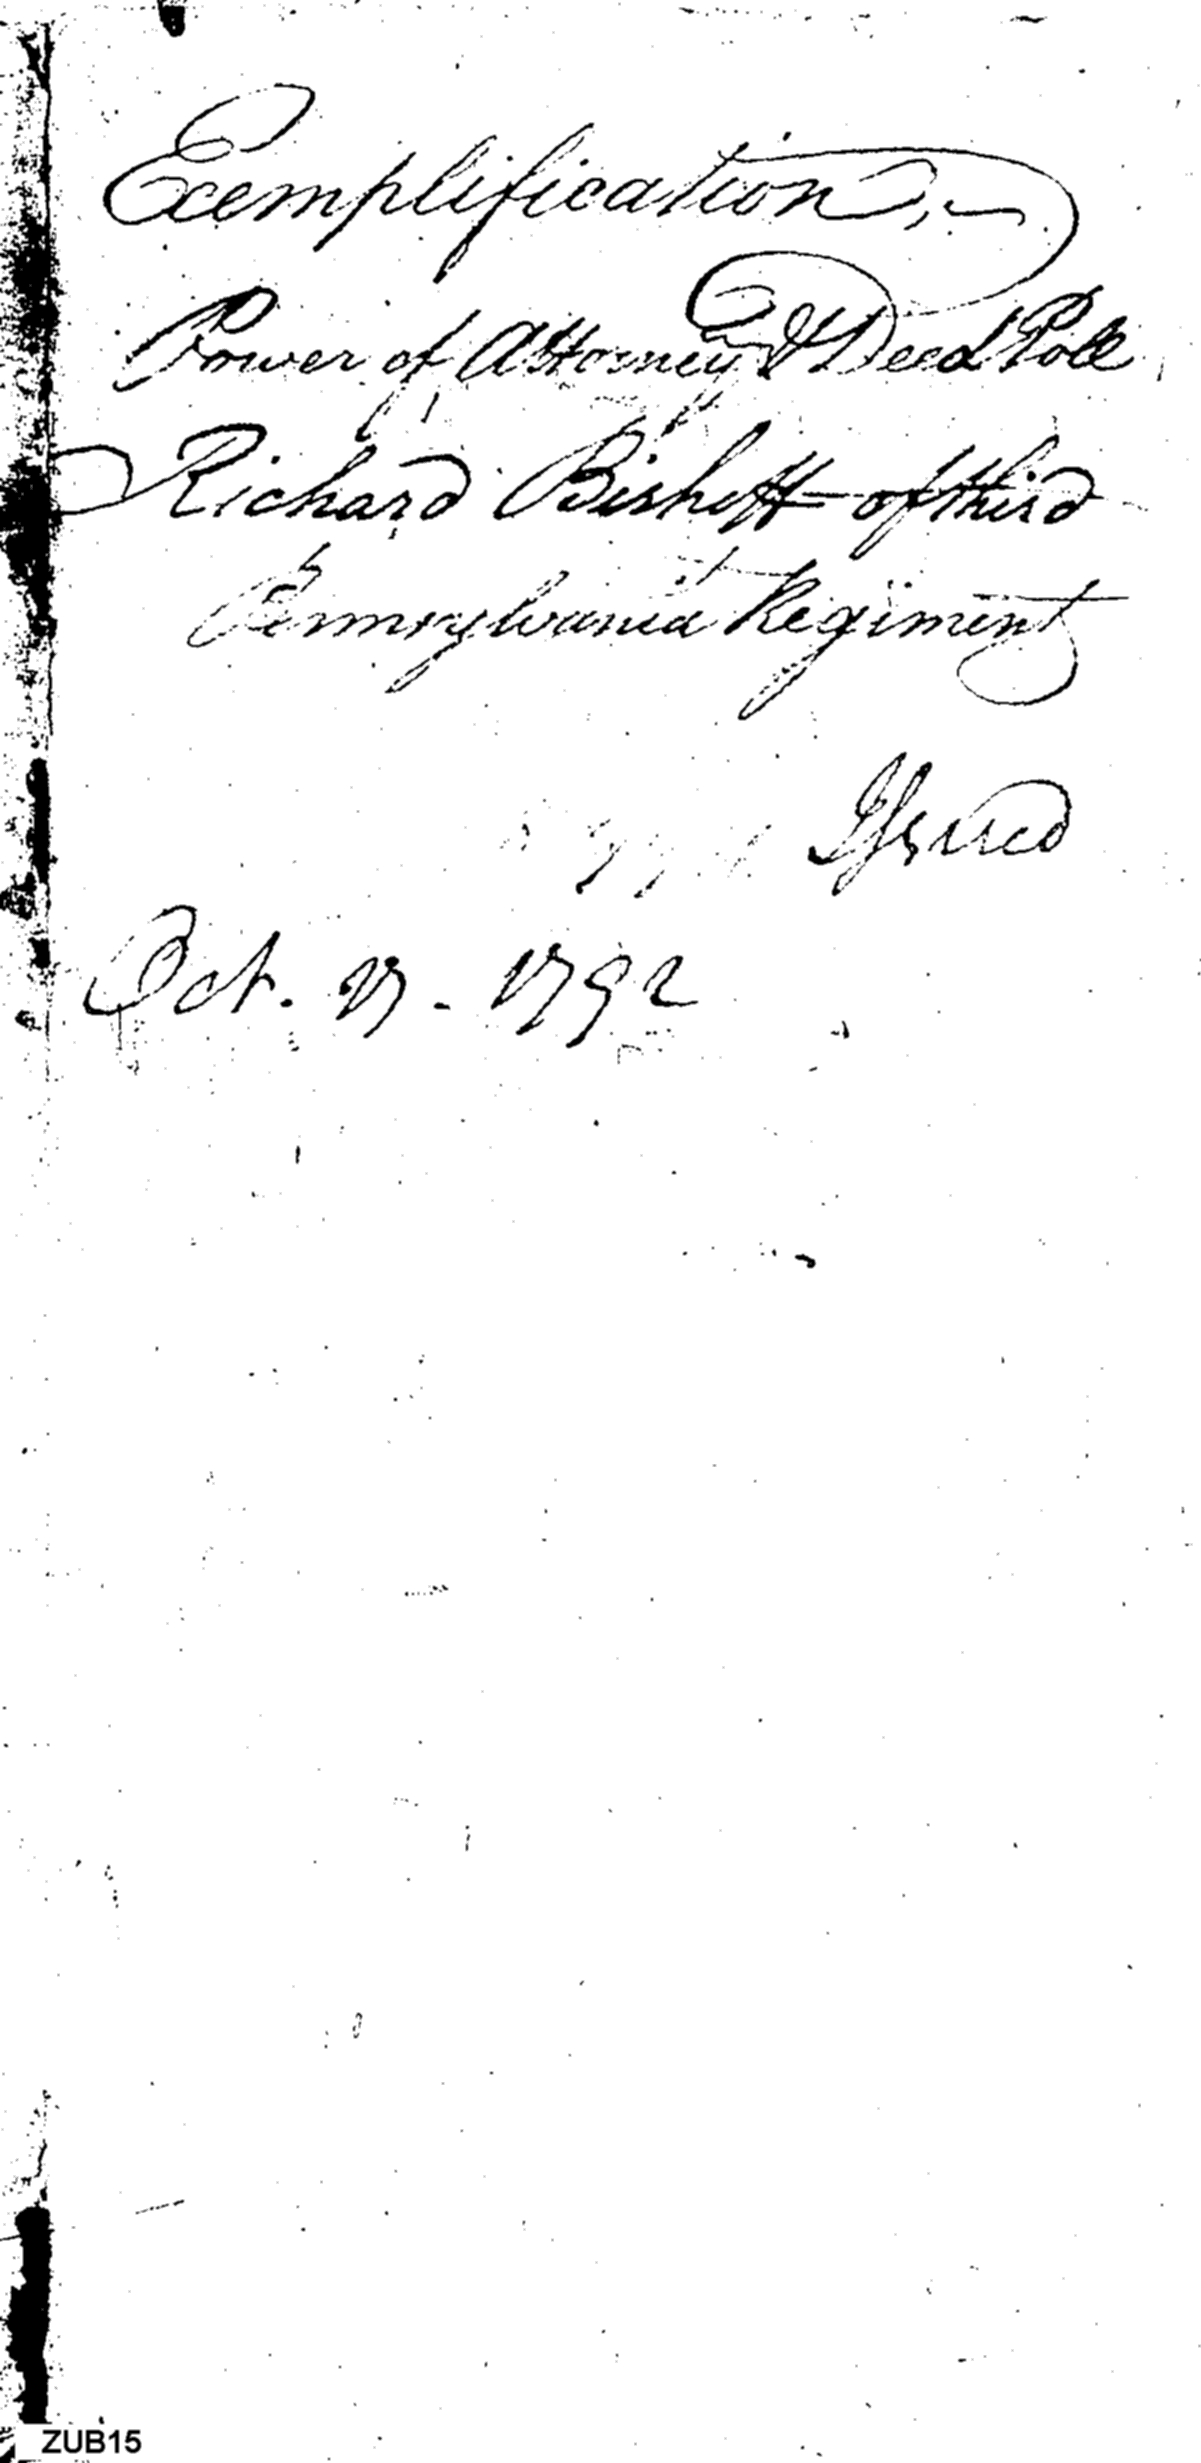 Exemplification,
Power of Attorney & Deed Poll
Richard Bishoff of third
Pennsylvania Regiment
Issued
Oct. 27 - 1792
ZUB15